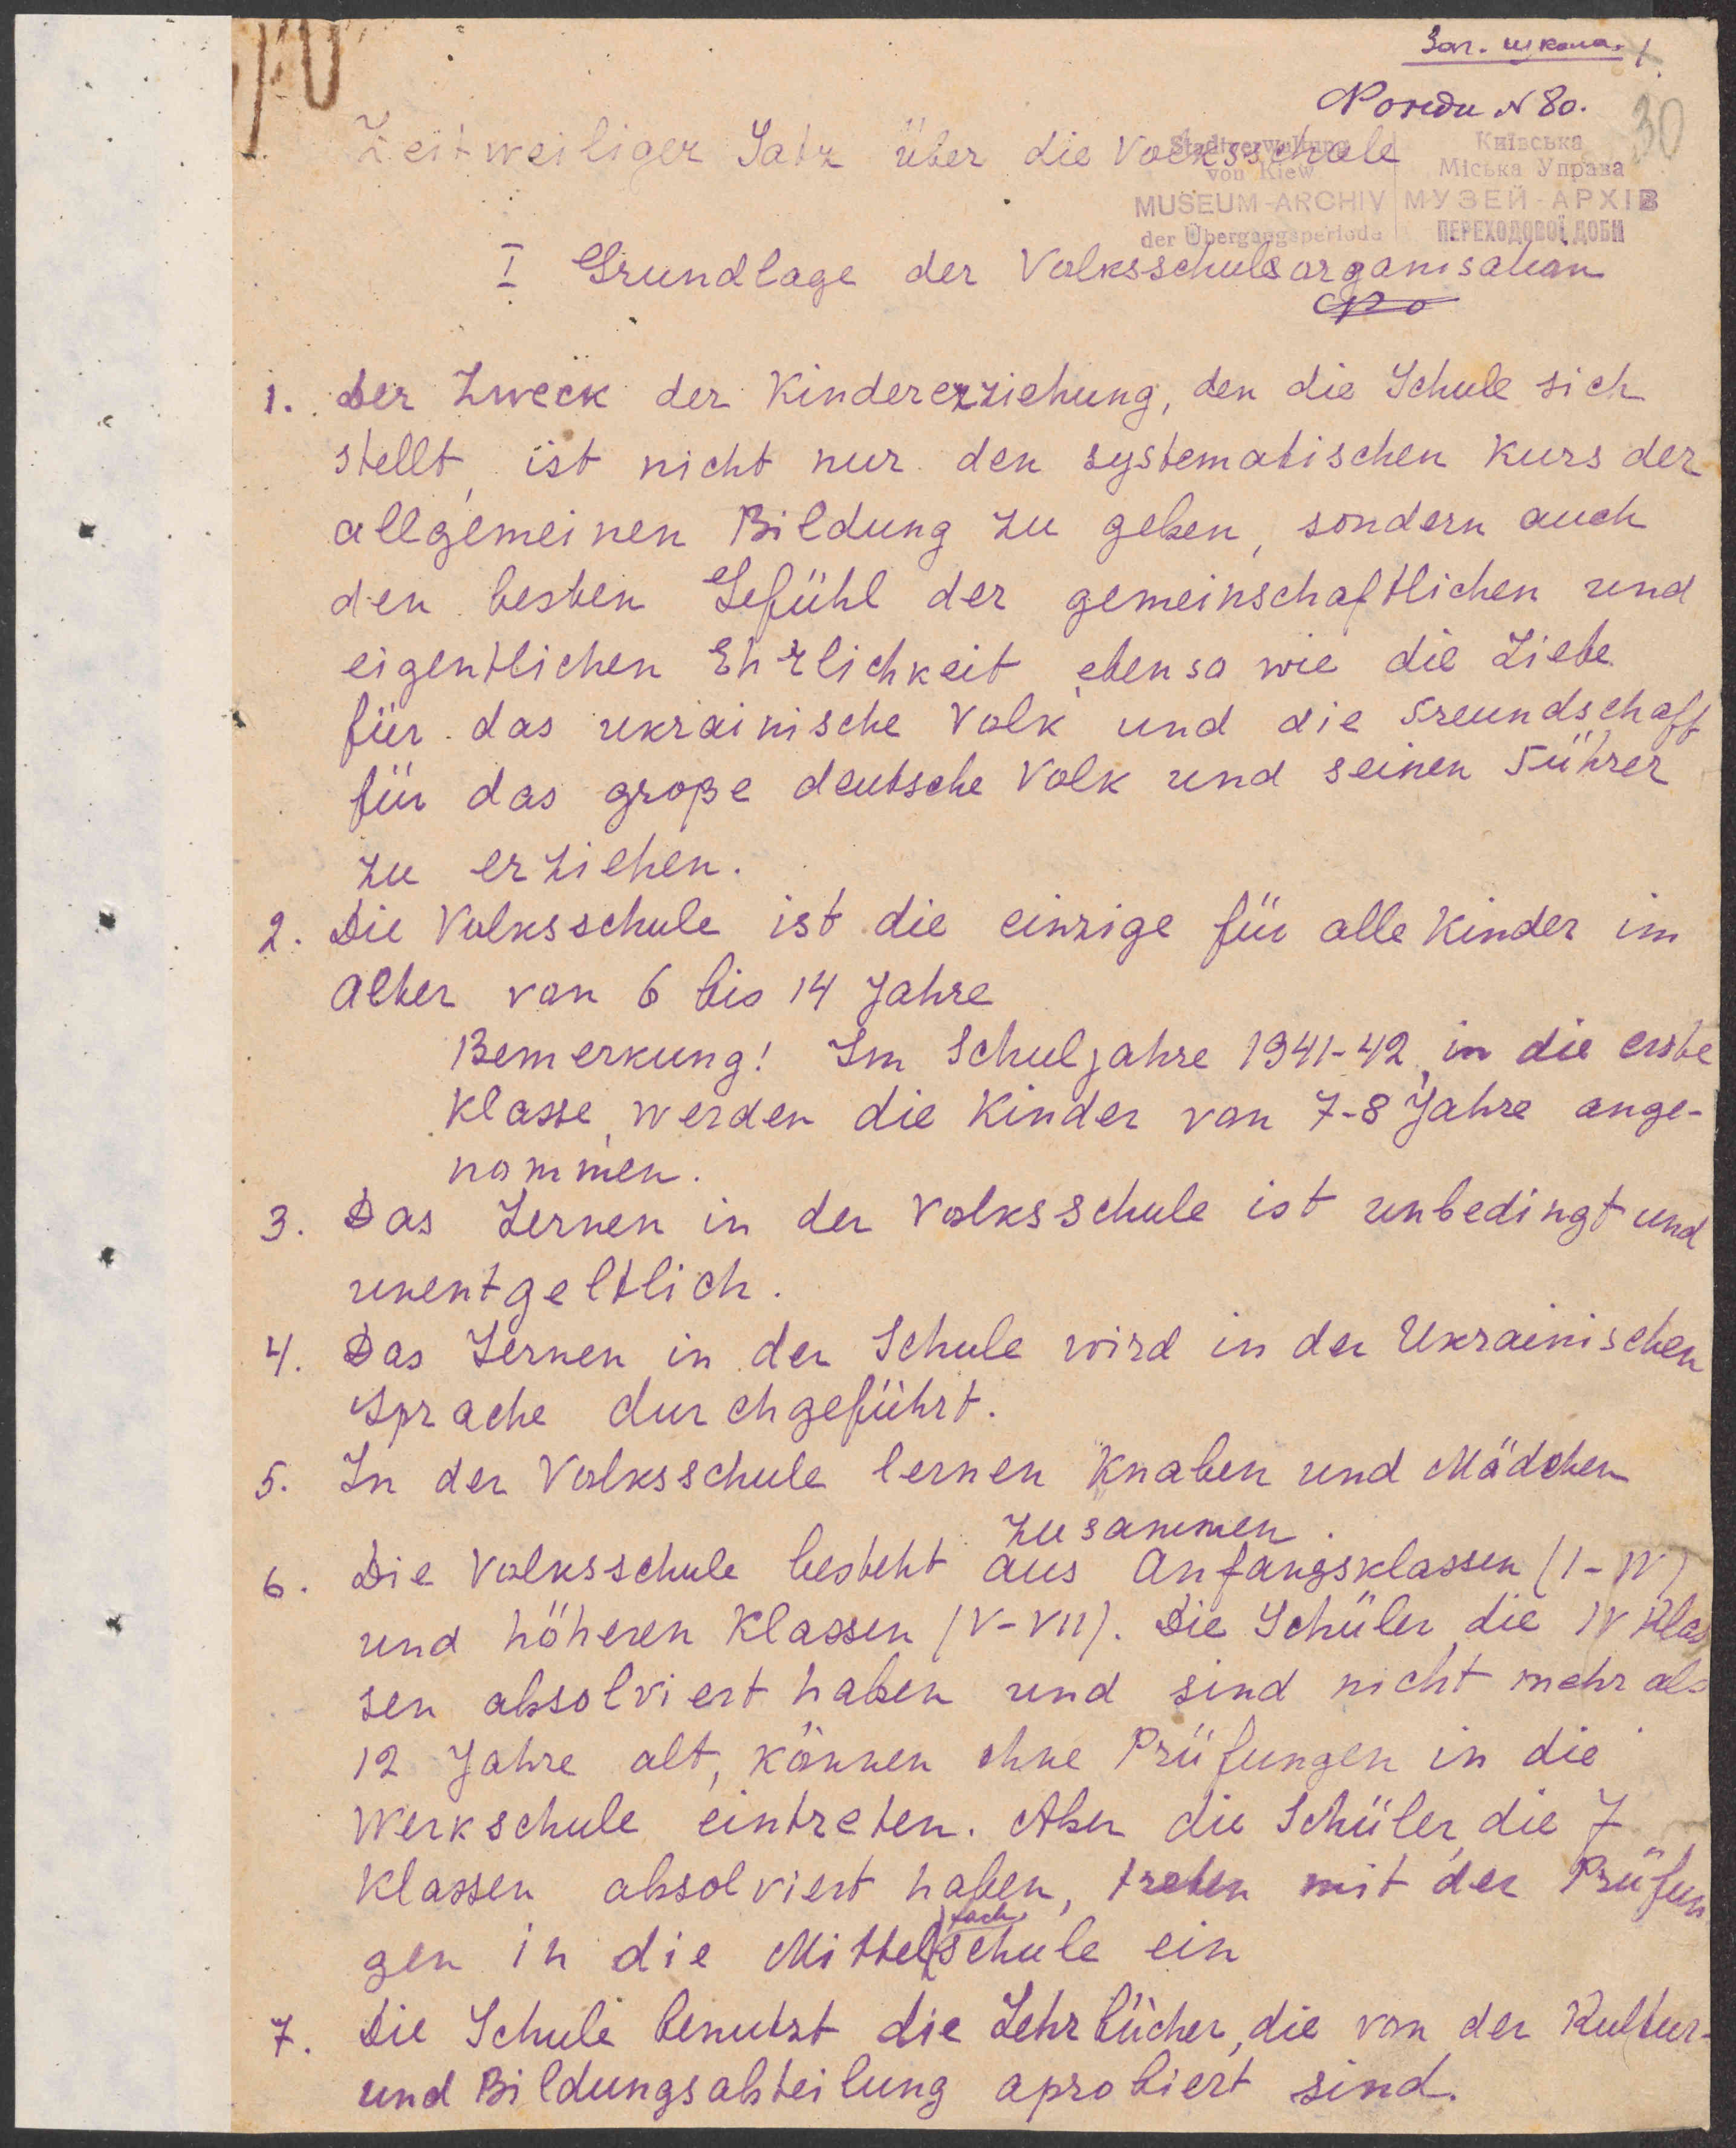 Заг. школа. 1.
N 80.
30
Zeitweiliger Satz über die Volksschule
Stadtverwaltung
von Kiew
MUSEUM-ARCHIV
der Übergangsperiode
Київська
Міська Управа
МУЗЕЙ-АРХІВ
ПЕРЕХОДОВОЇ ДОБИ
I Grundlage der Volksschulsorganisation
1. Der Zweck der Kindererziehung, den die Schule sich
stellt, ist nicht nur den systematischen Kurs der
allgemeinen Bildung zu geben, sondern auch
den besten Gefühl der gemeinschaftlichen und
eigentlichen Ehrlichkeit, ebenso wie die Liebe
für das ukrainische Volk und die Freundschaft
für das große deutsche Volk und seinen Führer
zu erziehen.
2. Die Volksschule ist die einzige für alle Kinder im
Alter von 6 bis 14 Jahre
Bemerkung! Im Schuljahre 1941-42, in die erste
Klasse, werden die Kinder von 7-8 Jahre ange-
nommen.
3. Das Lernen in der Volksschule ist unbedingt und
unentgeltlich.
4. Das Lernen in der Schule wird in der Ukrainischen
Sprache durchgeführt.
5. In der Volksschule lernen Knaben und Mädchen
zusammen.
6. Die Volksschule besteht aus Anfangsklassen (I-IV)
und höheren Klassen (V-VII). Die Schüler, die IV Klas
sen absolviert haben und sind nicht mehr als
12 Jahre alt, können ohne Prüfungen in die
Werkschule eintreten. Aber die Schüler, die 7
Klassen absolviert haben, treten mit der Prüfun
gen in die Mittelfachschule ein
7. Die Schule benutzt die Lehrbücher, die von der Kultur-
und Bildungsabteilung aprobiert sind.